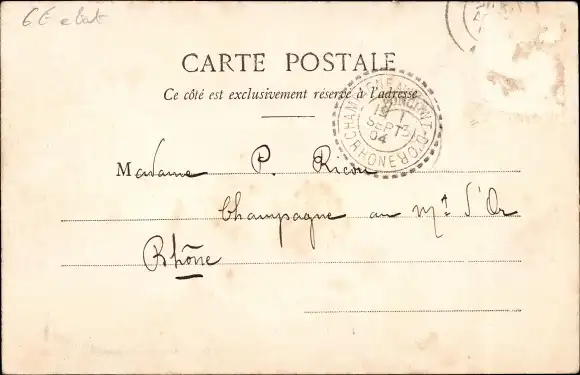 6€
CARTE POSTALE
Ce côté est exclusivement réservé à l'adresse
CHAMPAGNE-AU-MONT-D'OR
1
SEPT
04
RHONE
Madame P. Ricou
Champagne au Mt d'Or
Rhône